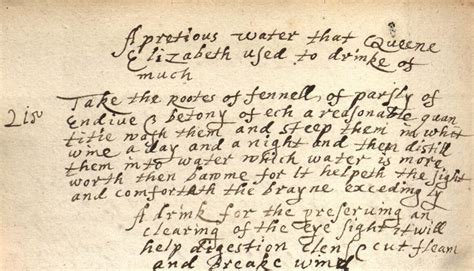 A pretious water that Queene
Elizabeth used to drinke of
much
215 Take the rootes of fennell, of parsly of
Endive & betony of ech a reasonable quan
titie wash them and steep them in whit
wine a day and a night and then distill
them into water which water is more
worth then bawme for it helpeth the sight
and comforteth the brayne exceding ly
A drink for the preserving an
clearing of the eye sight, it will
help digestion clens & cut fleam
and breake wind